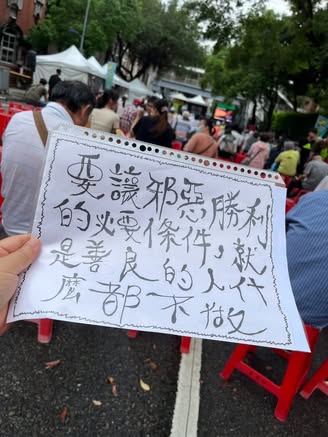 要讓邪惡勝利
的必要條件，就
是善良的人什
麼都不做